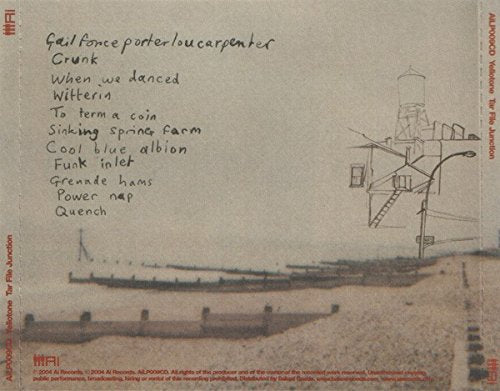 AiLP009CD Yellotone Tar File Junction
Ai
Gail force porter lou carpenter
Crunk
When we danced
Witterin
To term a coin
Sinking spring farm
Cool blue albion
Funk inlet
Grenade hams
Power nap
Quench
AiLP009CD Yellotone Tar File Junction
Ai
Ai
℗ 2004 Ai Records, © 2004 Ai Records, AiLP009CD, All rights of the producer and of the owner of the recorded work reserved. Unauthorised copying,
public performance, broadcasting, hiring or rental of this recording prohibited. Distributed by Baked Goods.
Ai